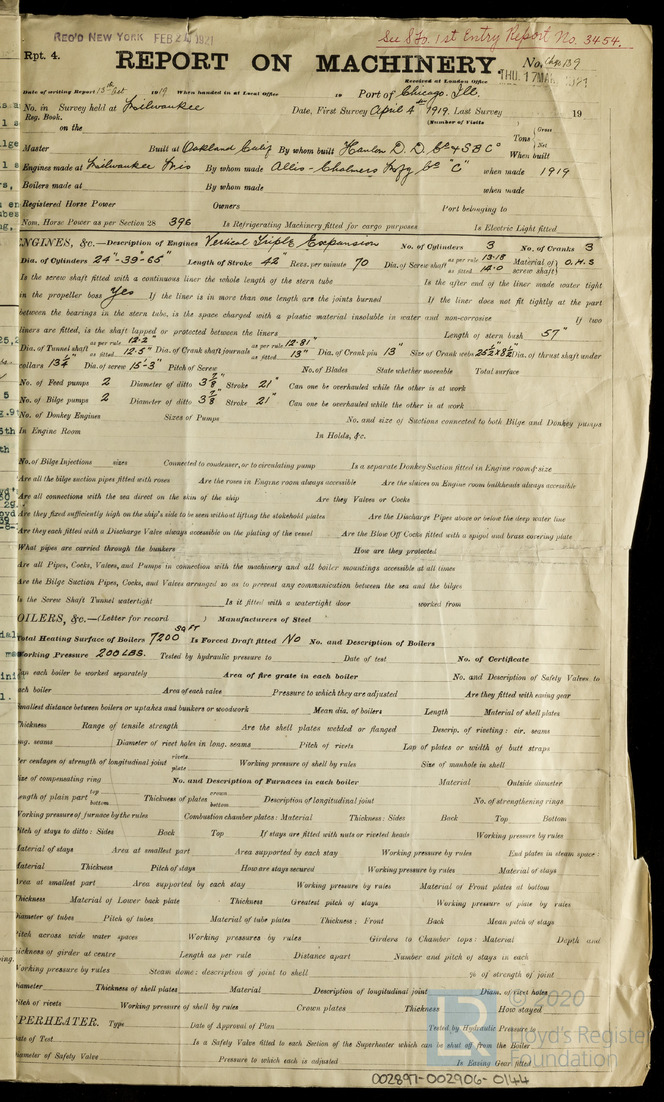 See S Fo. 1st Entry Report No. 3454.
REC'D NEW YORK FEB 21 1921
Rpt. 4.
REPORT ON MACHINERY. No. Chgo 139
Received at London Office THU. 17 MAR. 1921
Date of writing Report 15th Oct 1919 When handed in at Local Office 19 Port of Chicago. Ill.
No. in Survey held at Milwaukee Date, First Survey April 4th 1919. Last Survey 19
Reg. Book. (Number of Visits
on the Tons Gross Net
Master Built at Oakland Calif By whom built Hanlon D. D. & S B Co When built
Engines made at Milwaukee Wis By whom made Allis-Chalmers Mfg Co "C" when made 1919
Boilers made at By whom made when made
Registered Horse Power Owners Port belonging to
Nom. Horse Power as per Section 28 396 Is Refrigerating Machinery fitted for cargo purposes Is Electric Light fitted
ENGINES, &c.—Description of Engines Vertical Triple Expansion No. of Cylinders 3 No. of Cranks 3
Dia. of Cylinders 24"-39-65" Length of Stroke 42" Revs. per minute 70 Dia. of Screw shaft as per rule 13.18 as fitted 14.0 Material of screw shaft O.H.S
Is the screw shaft fitted with a continuous liner the whole length of the stern tube Is the after end of the liner made water tight
in the propeller boss Yes If the liner is in more than one length are the joints burned If the liner does not fit tightly at the part
between the bearings in the stern tube, is the space charged with a plastic material insoluble in water and non-corrosive If two
liners are fitted, is the shaft lapped or protected between the liners Length of stern bush 57"
Dia. of Tunnel shaft as per rule 12.2" as fitted 12.5" Dia. of Crank shaft journals as per rule 12.81" as fitted 13" Dia. of Crank pin 13" Size of Crank webs 25½"x8½" Dia. of thrust shaft under
collars 13¼" Dia. of screw 15'-3" Pitch of Screw No. of Blades State whether moveable Total surface
No. of Feed pumps 2 Diameter of ditto 3⅞" Stroke 21" Can one be overhauled while the other is at work
No. of Bilge pumps 2 Diameter of ditto 3⅞" Stroke 21" Can one be overhauled while the other is at work
No. of Donkey Engines Sizes of Pumps No. and size of Suctions connected to both Bilge and Donkey pumps
In Engine Room In Holds, &c.
No. of Bilge Injections sizes Connected to condenser, or to circulating pump Is a separate Donkey Suction fitted in Engine room & size
Are all the bilge suction pipes fitted with roses Are the roses in Engine room always accessible Are the sluices on Engine room bulkheads always accessible
Are all connections with the sea direct on the skin of the ship Are they Valves or Cocks
Are they fixed sufficiently high on the ship's side to be seen without lifting the stokehold plates Are the Discharge Pipes above or below the deep water line
Are they each fitted with a Discharge Valve always accessible on the plating of the vessel Are the Blow Off Cocks fitted with a spigot and brass covering plate
What pipes are carried through the bunkers How are they protected
Are all Pipes, Cocks, Valves, and Pumps in connection with the machinery and all boiler mountings accessible at all times
Are the Bilge Suction Pipes, Cocks, and Valves arranged so as to prevent any communication between the sea and the bilges
Is the Screw Shaft Tunnel watertight Is it fitted with a watertight door worked from
OILERS, &c.—(Letter for record ) Manufacturers of Steel
Total Heating Surface of Boilers 7200 SQ FT Is Forced Draft fitted No No. and Description of Boilers
Working Pressure 200 LBS. Tested by hydraulic pressure to Date of test No. of Certificate
an each boiler be worked separately Area of fire grate in each boiler No. and Description of Safety Valves to
ach boiler Area of each valve Pressure to which they are adjusted Are they fitted with easing gear
Smallest distance between boilers or uptakes and bunkers or woodwork Mean dia. of boilers Length Material of shell plates
Thickness Range of tensile strength Are the shell plates welded or flanged Descrip. of riveting: cir. seams
ong. seams Diameter of rivet holes in long. seams Pitch of rivets Lap of plates or width of butt straps
Per centages of strength of longitudinal joint rivets plate Working pressure of shell by rules Size of manhole in shell
Size of compensating ring No. and Description of Furnaces in each boiler Material Outside diameter
Length of plain part top bottom Thickness of plates crown bottom Description of longitudinal joint No. of strengthening rings
Working pressure of furnace by the rules Combustion chamber plates: Material Thickness: Sides Back Top Bottom
Pitch of stays to ditto: Sides Back Top If stays are fitted with nuts or riveted heads Working pressure by rules
Material of stays Area at smallest part Area supported by each stay Working pressure by rules End plates in steam space:
Material Thickness Pitch of stays How are stays secured Working pressure by rules Material of stays
Area at smallest part Area supported by each stay Working pressure by rules Material of Front plates at bottom
Thickness Material of Lower back plate Thickness Greatest pitch of stays Working pressure of plate by rules
Diameter of tubes Pitch of tubes Material of tube plates Thickness: Front Back Mean pitch of stays
Pitch across wide water spaces Working pressures by rules Girders to Chamber tops: Material Depth and
thickness of girder at centre Length as per rule Distance apart Number and pitch of stays in each
Working pressure by rules Steam dome: description of joint to shell % of strength of joint
Diameter Thickness of shell plates Material Description of longitudinal joint Diam. of rivet holes
Pitch of rivets Working pressure of shell by rules Crown plates Thickness How stayed
PERHEATER. Type Date of Approval of Plan Tested by Hydraulic Pressure to
Date of Test Is a Safety Valve fitted to each Section of the Superheater which can be shut off from the Boiler
Diameter of Safety Valve Pressure to which each is adjusted Is Easing Gear fitted
© 2020
Lloyd's Register
Foundation
002897-002906-0144